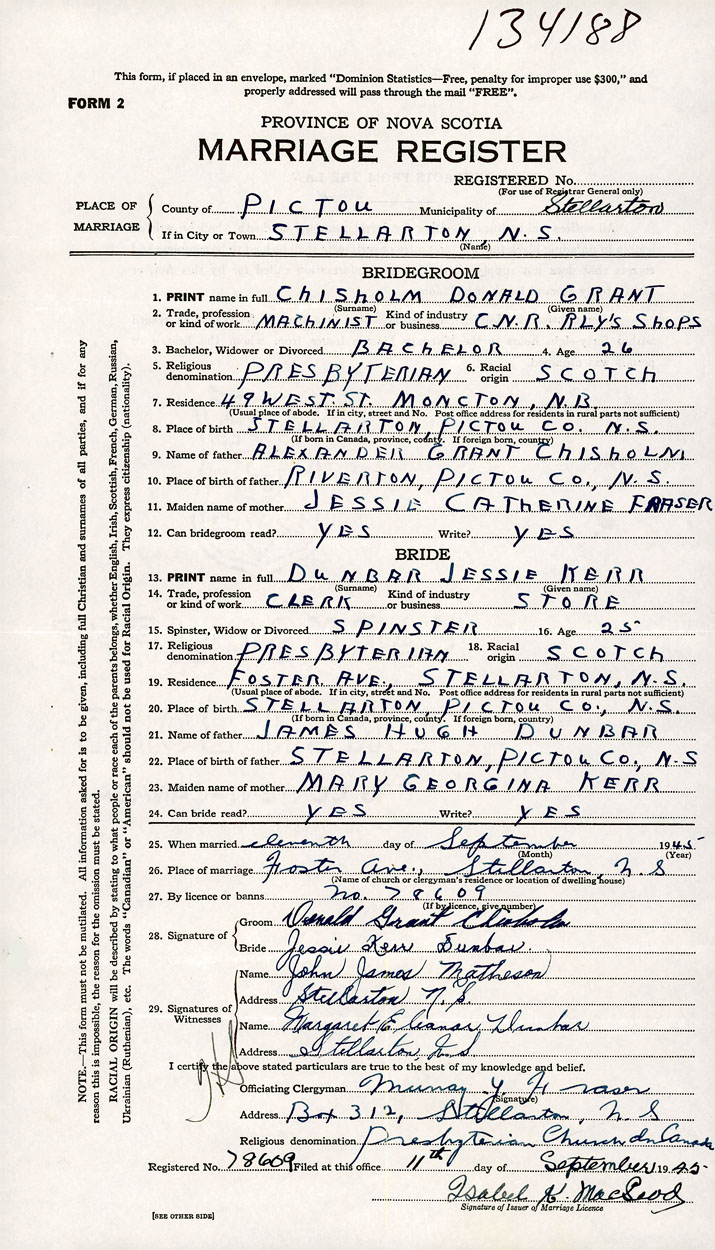 134188
This form, if placed in an envelope, marked “Dominion Statistics—Free, penalty for improper use $300,” and
properly addressed will pass through the mail “FREE”.
FORM 2
PROVINCE OF NOVA SCOTIA
MARRIAGE REGISTER
REGISTERED No.
(For use of Registrar General only)
PLACE OF MARRIAGE
County of PICTOU Municipality of Stellarton
If in City or Town STELLARTON, N.S.
(Name)
BRIDEGROOM
1. PRINT name in full CHISHOLM DONALD GRANT
(Surname) (Given name)
2. Trade, profession or kind of work MACHINIST Kind of industry or business C.N.R. RLY'S SHOPS
3. Bachelor, Widower or Divorced BACHELOR 4. Age 26
5. Religious denomination PRESBYTERIAN 6. Racial origin SCOTCH
7. Residence 49 WEST ST. MONCTON, N.B.
(Usual place of abode. If in city, street and No. Post office address for residents in rural parts not sufficient)
8. Place of birth STELLARTON, PICTOU CO. N.S.
(If born in Canada, province, county. If foreign born, country)
9. Name of father ALEXANDER GRANT CHISHOLM
10. Place of birth of father RIVERTON, PICTOU CO., N.S.
11. Maiden name of mother JESSIE CATHERINE FRASER
12. Can bridegroom read? YES Write? YES
BRIDE
13. PRINT name in full DUNBAR JESSIE KERR
(Surname) (Given name)
14. Trade, profession or kind of work CLERK Kind of industry or business STORE
15. Spinster, Widow or Divorced SPINSTER 16. Age 25
17. Religious denomination PRESBYTERIAN 18. Racial origin SCOTCH
19. Residence FOSTER AVE., STELLARTON, N.S.
(Usual place of abode. If in city, street and No. Post office address for residents in rural parts not sufficient)
20. Place of birth STELLARTON, PICTOU CO., N.S.
(If born in Canada, province, county. If foreign born, country)
21. Name of father JAMES HUGH DUNBAR
22. Place of birth of father STELLARTON, PICTOU CO., N.S
23. Maiden name of mother MARY GEORGINA KERR
24. Can bride read? YES Write? YES
25. When married eleventh day of September 1945
(Month) (Year)
26. Place of marriage Foster Ave., Stellarton, N S
(Name of church or clergyman's residence or location of dwelling house)
27. By licence or banns No. 78609
(If by licence, give number)
28. Signature of
Groom Donald Grant Chisholm
Bride Jessie Kerr Dunbar.
29. Signatures of Witnesses
Name John James Matheson
Address Stellarton N.S.
Name Margaret Eleanor Dunbar
Address Stellarton, N.S
I certify the above stated particulars are true to the best of my knowledge and belief.
Officiating Clergyman Murray Y. Fraser
(Signature)
Address Box 312, Stellarton, N S
Religious denomination Presbyterian Church in Canada
Registered No. 78609 Filed at this office 11th day of September 1945
Isabel K. MacLeod
Signature of Issuer of Marriage Licence
[SEE OTHER SIDE]
NOTE.—This form must not be mutilated. All information asked for is to be given, including full Christian and surnames of all parties, and if for any
reason this is impossible, the reason for the omission must be stated.
RACIAL ORIGIN will be described by stating to what people or race each of the parents belongs, whether English, Irish, Scottish, French, German, Russian,
Ukrainian (Ruthenian), etc. The words “Canadian” or “American” should not be used for Racial Origin. They express citizenship (nationality).